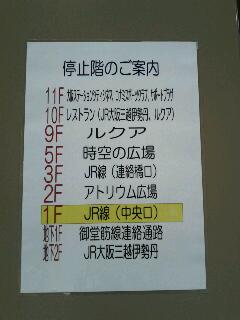 停止階のご案内
11F 大阪ステーションシティシネマ、コナミスポーツクラブ、サポートプラザ
10F レストラン(JR大阪三越伊勢丹、ルクア)
9F ルクア
5F 時空の広場
3F JR線(連絡橋口)
2F アトリウム広場
1F JR線(中央口)
地下1F 御堂筋線連絡通路
地下2F JR大阪三越伊勢丹